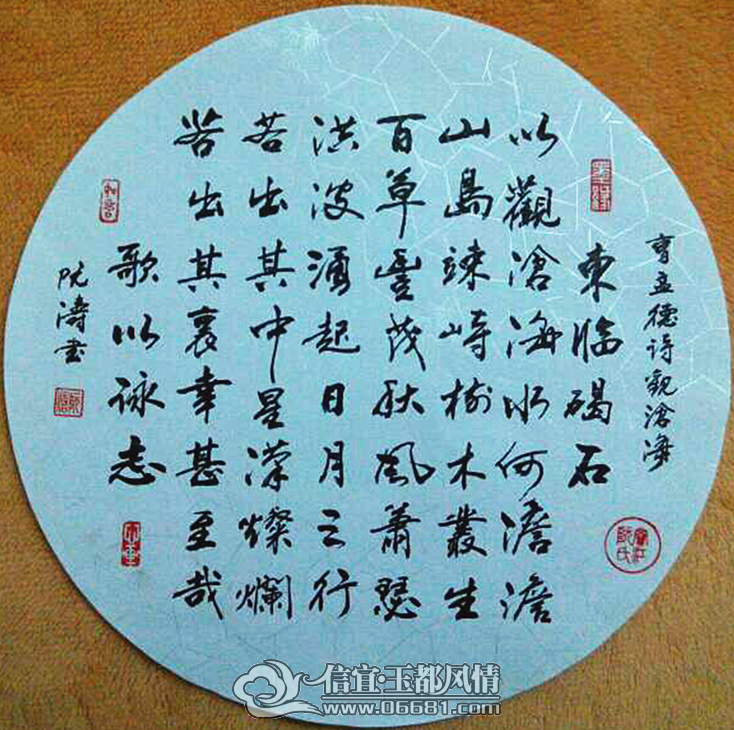 曹孟德诗觀滄海
東临碣石
以觀滄海水何澹澹
山島竦峙樹木叢生
百草豐茂秋風蕭瑟
洪波涌起日月之行
若出其中星漢燦爛
若出其裏幸甚至哉
歌以詠志
阮濤書
信宜·玉都风情
www.06681.com